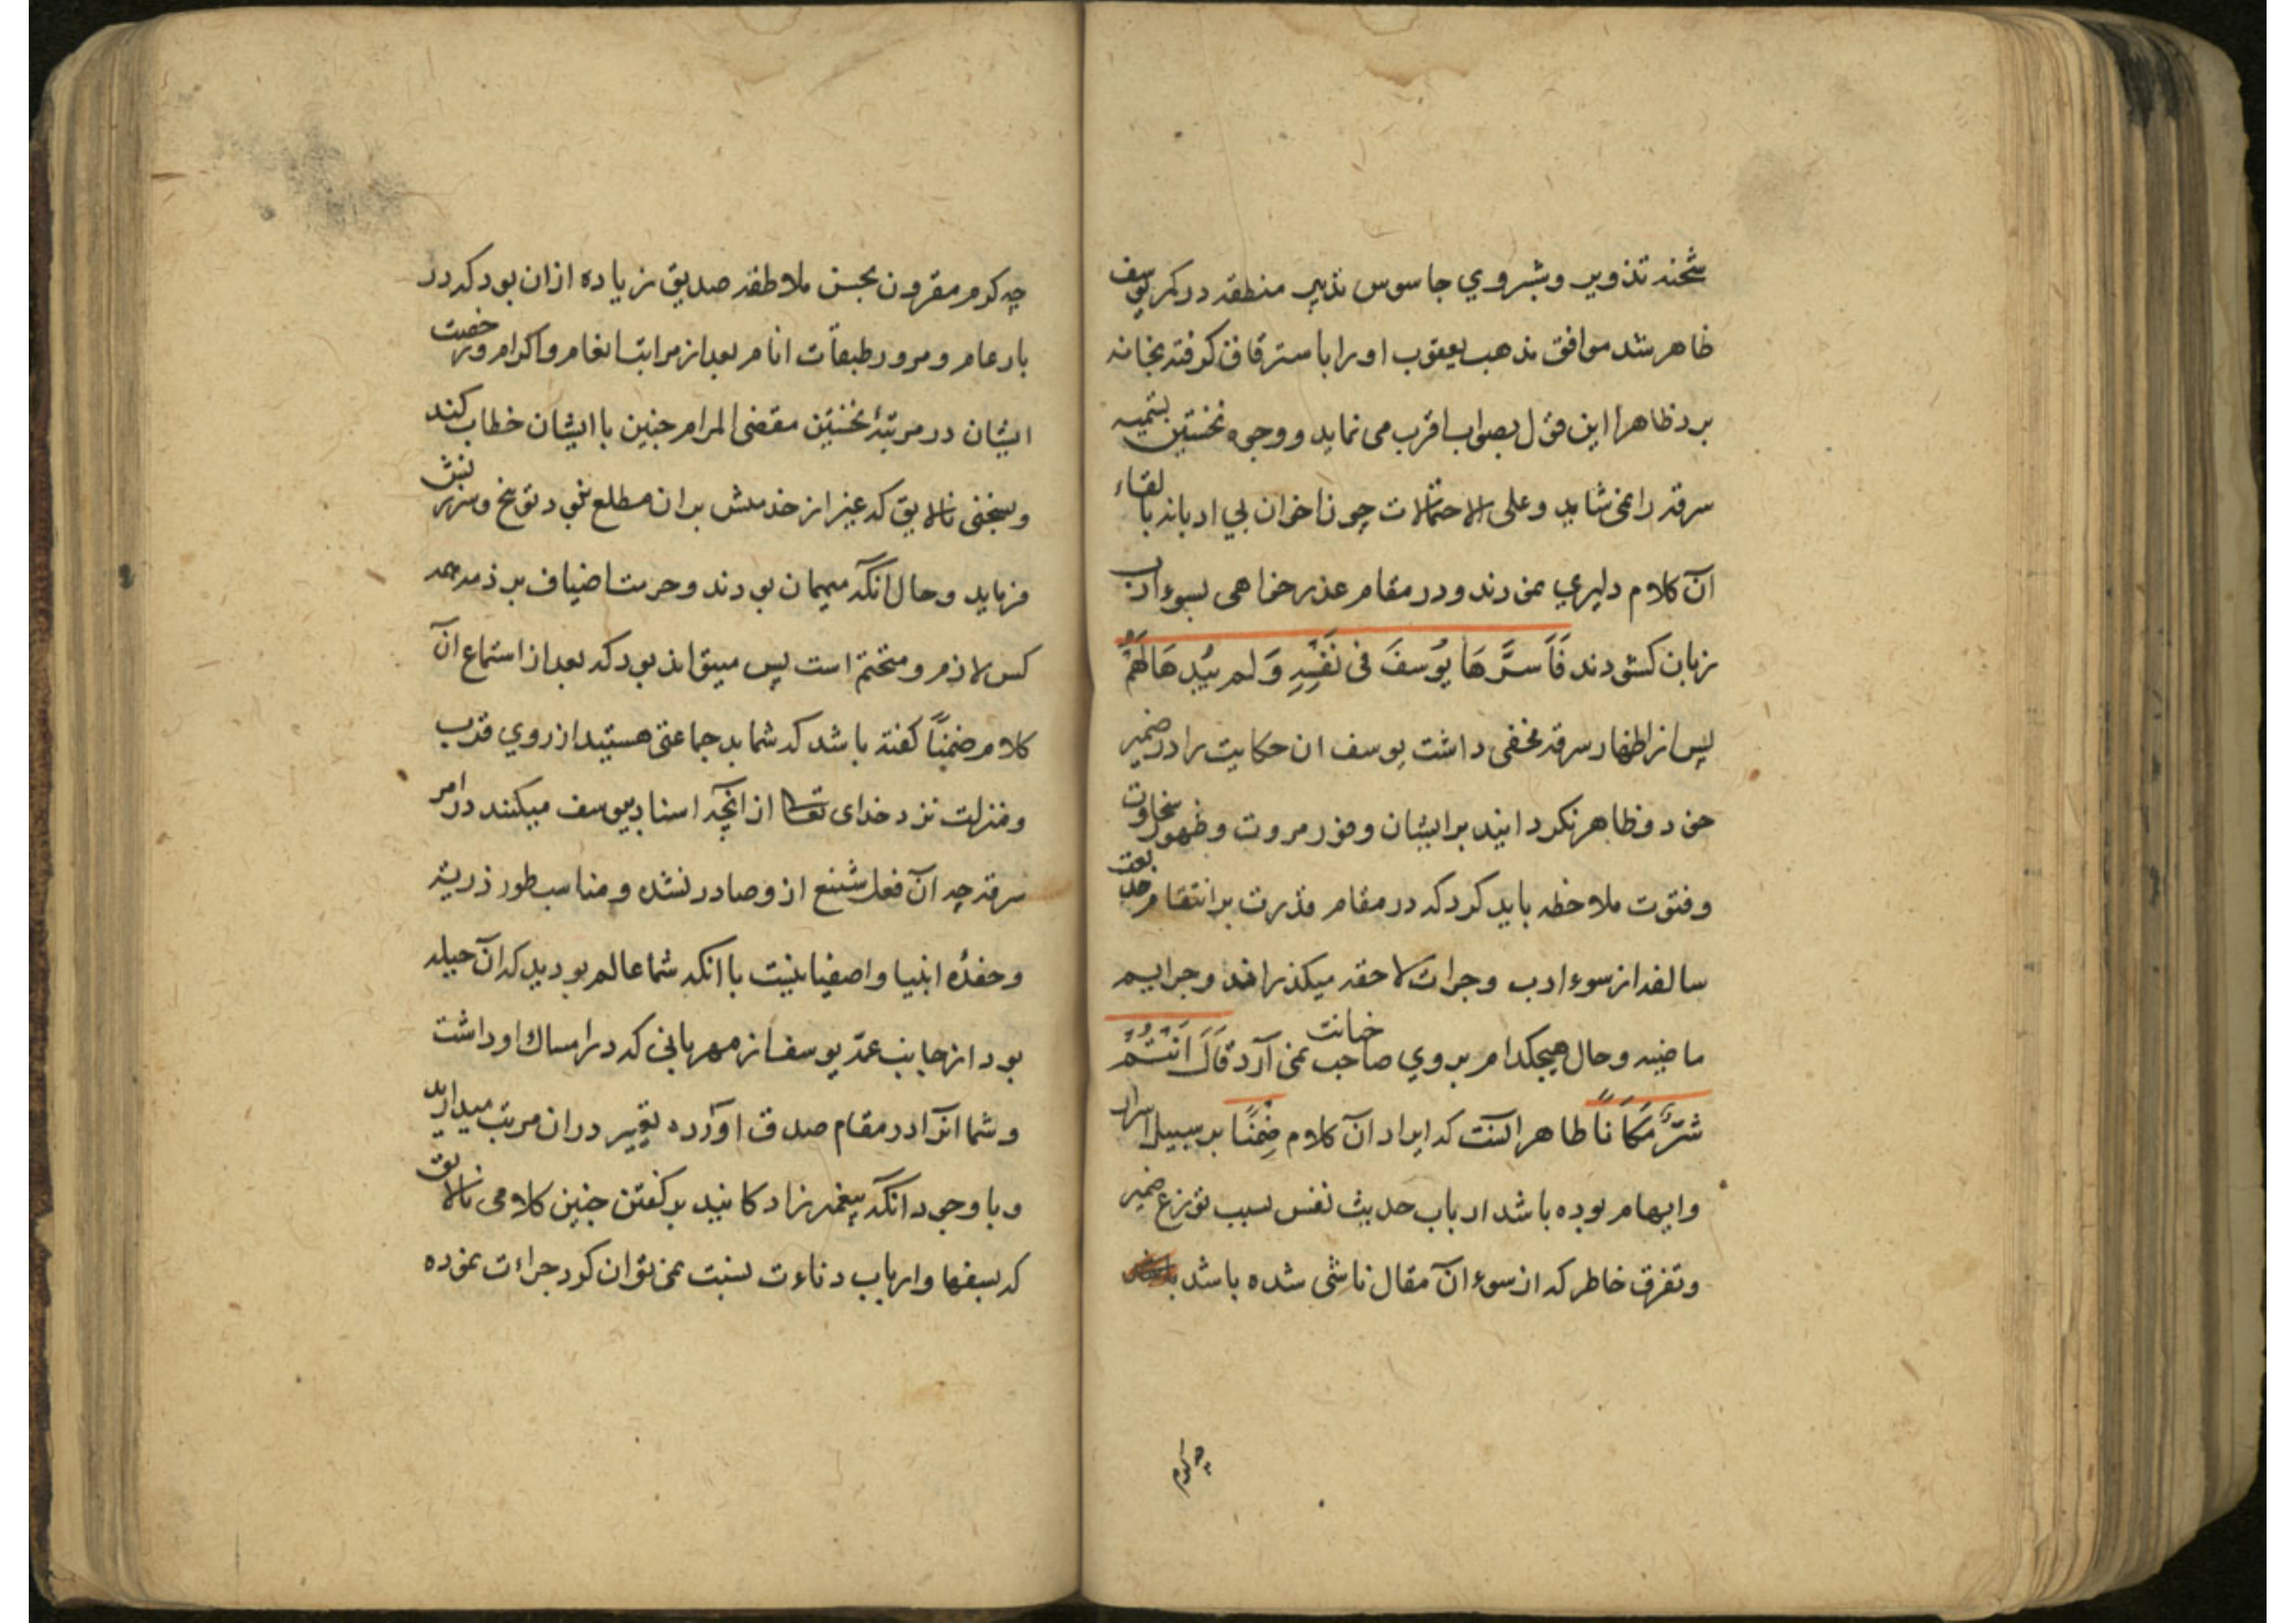 شحنه تذویر و بشروی جاسوس تدبیر منطقه در کمر یوسف
ظاهر شد موافق مذهب یعقوب او را باسترقاق گرفته بخانه
برد ظاهراً این قول بصواب اقرب می نماید و وجوه نخستین بتسمیه
سرقه را نمی شاید و علی الاحتمالات چون اخوان بی ادبانه بالقاء
آن کلام دلیری نمودند و در مقام عذرخواهی بسوء ادب
زبان کشودند فَاَسَرَّهَا یُوسُفَ فی نَفْسِهِ وَلم یُبْدِهَا لَهُمْ
پس از اظهار سرقه مخفی داشت یوسف ان حکایت را در ضمیر
خود و ظاهر نکردانید بر ایشان و فور مروت و ظهور سخاوت
و فتوت ملاحظه باید کرد که در مقام قدرت بر انتقام حق
سالفه از سوء ادب و جرات لاحقه میکذراند و جرایم
ماضیه و حال هیچکدام بروی صاحب خیانت نمی آرد قَالَ اَنْتُمْ
شَرٌّ مَکَاناً ظاهر آنست که ایراد آن کلام ضِمْنًا بر سبیل اسرار
و ایهام بوده باشد ارباب حدیث نفس بسبب توزع ضمیر
و تفرق خاطر که از سوء آن مقال ناشی شده باشد
چه کرم
چه کرم مقرون بحسن ملاطفه صدیق زیاده ازان بود که در
بار عام و مرور طبقات انام بعد از مراتب انعام و اکرام و رخصت
ایشان در مرتبهٔ نخستین مقضی المرام چنین با ایشان خطاب کند
و بسخنی نالایق که غیر از خدمتش بران مطلع نبود توبیخ و سرزنش
فرماید و حال آنکه میهمان بودند و حرمت اضیاف بر ذمه همه
کس لازم و متحتم است پس میتواند بود که بعد از استماع آن
کلام ضمناً کفته باشد که شما بد جماعتی هستید از روی قرب
و منزلت نزد خدای تعالی از آنچه اسناد بیوسف میکنند در امر
سرقه چه آن فعل شنیع ازو صادر نشده و مناسب طور ذریه
و حفدهٔ انبیا و اصفیا نیست با آنکه شما عالم بودید که آن حیله
بود از جانب عمّه یوسف از مهربانی که در امساک او داشت
و شما انرا در مقام صدق آورده تغییر دران مرتب میدارید
و با وجود آنکه پیغمبرزادکانید بر کفتن چنین کلامی نالایق
که بسفها و ارباب دناءت نسبت نمی توان کرد جراءت نموده